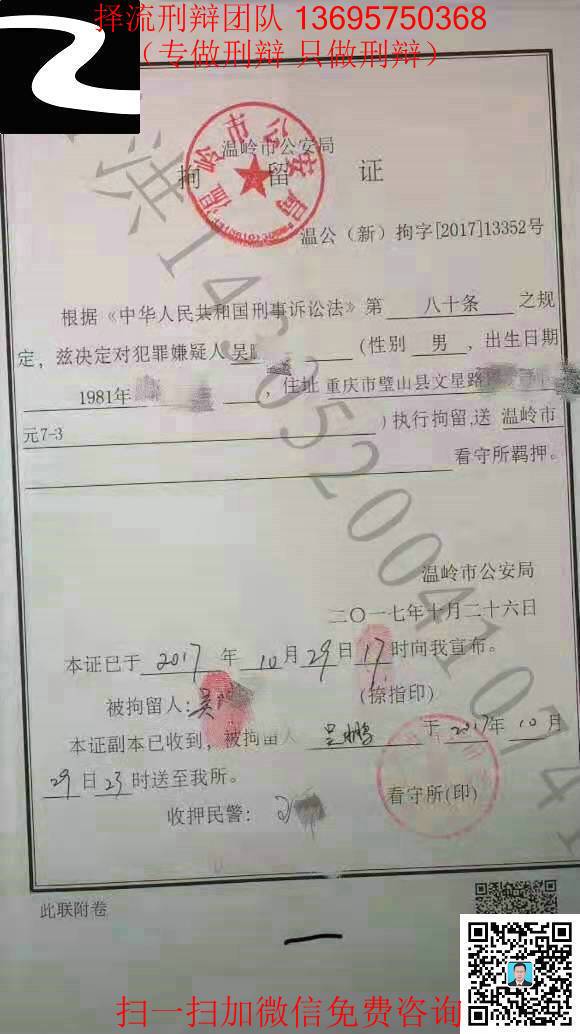 择流刑辩团队 13695750368
（专做刑辩 只做刑辩）
温岭市公安局
拘 留 证
温公（新）拘字[2017]13352号
根据《中华人民共和国刑事诉讼法》第 八十条 之规
定，兹决定对犯罪嫌疑人吴 （性别 男 ，出生日期
1981年 ，住址 重庆市璧山县文星路
元7-3 ）执行拘留,送 温岭市
看守所羁押。
温岭市公安局
二〇一七年十月二十六日
本证已于 2017 年 10 月 29 日 17 时向我宣布。
被拘留人:吴 （捺指印）
本证副本已收到，被拘留人 吴鹏 于 2017年 10 月
29 日 23 时送至我所。
收押民警： 看守所(印)
此联附卷
扫一扫加微信免费咨询